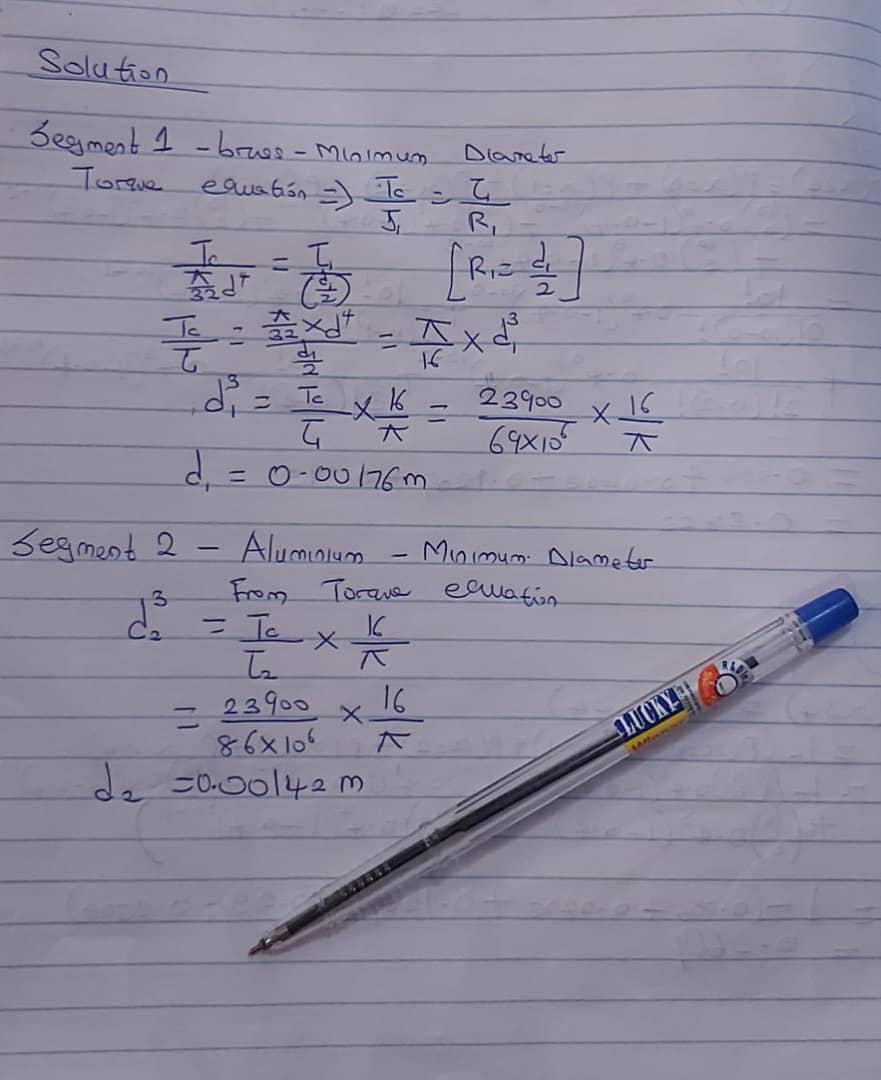 Solution
Segment 1 - brass - Minimum Diameter
Torque equation => Tc/J₁ = τ₁/R₁
Tc/(π/32 d⁴) = τ₁/(d₁/2) [R₁ = d₁/2]
Tc/τ₁ = (π/32 × d⁴)/(d₁/2) = π/16 × d₁³
d₁³ = Tc/τ₁ × 16/π = 23900/69×10⁶ × 16/π
d₁ = 0.00176m
Segment 2 - Aluminium - Minimum Diameter
From Torque equation
d₂³ = Tc/τ₂ × 16/π
= 23900/86×10⁶ × 16/π
d₂ = 0.00142 m
LUCKY